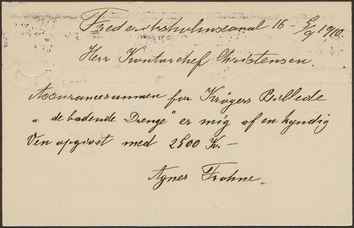 Frederiksholmscanal 16 - 5/9 1910.
Herr Kontorchef Christensen.
Assurancesummen for Krøyers Billede
„de badende Drenge" er mig af en kyndig
Ven opgivet med 2500 Kr. —
Agnes Frohne.